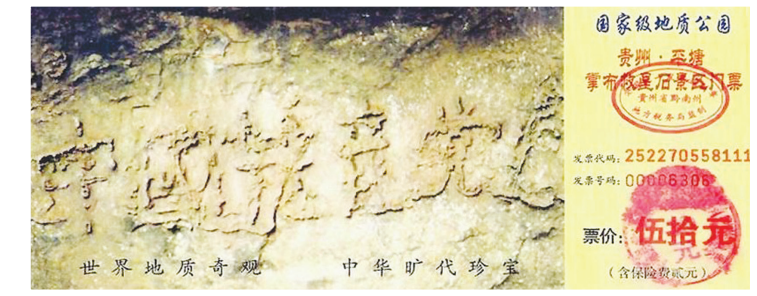 世界地质奇观 中华旷代珍宝
国家级地质公园
贵州·平塘
掌布救星石景区门票
贵州省黔南州
地方税务局监制
发票代码: 252270558111
发票号码: 00006306
票价: 伍拾元
(含保险费贰元)